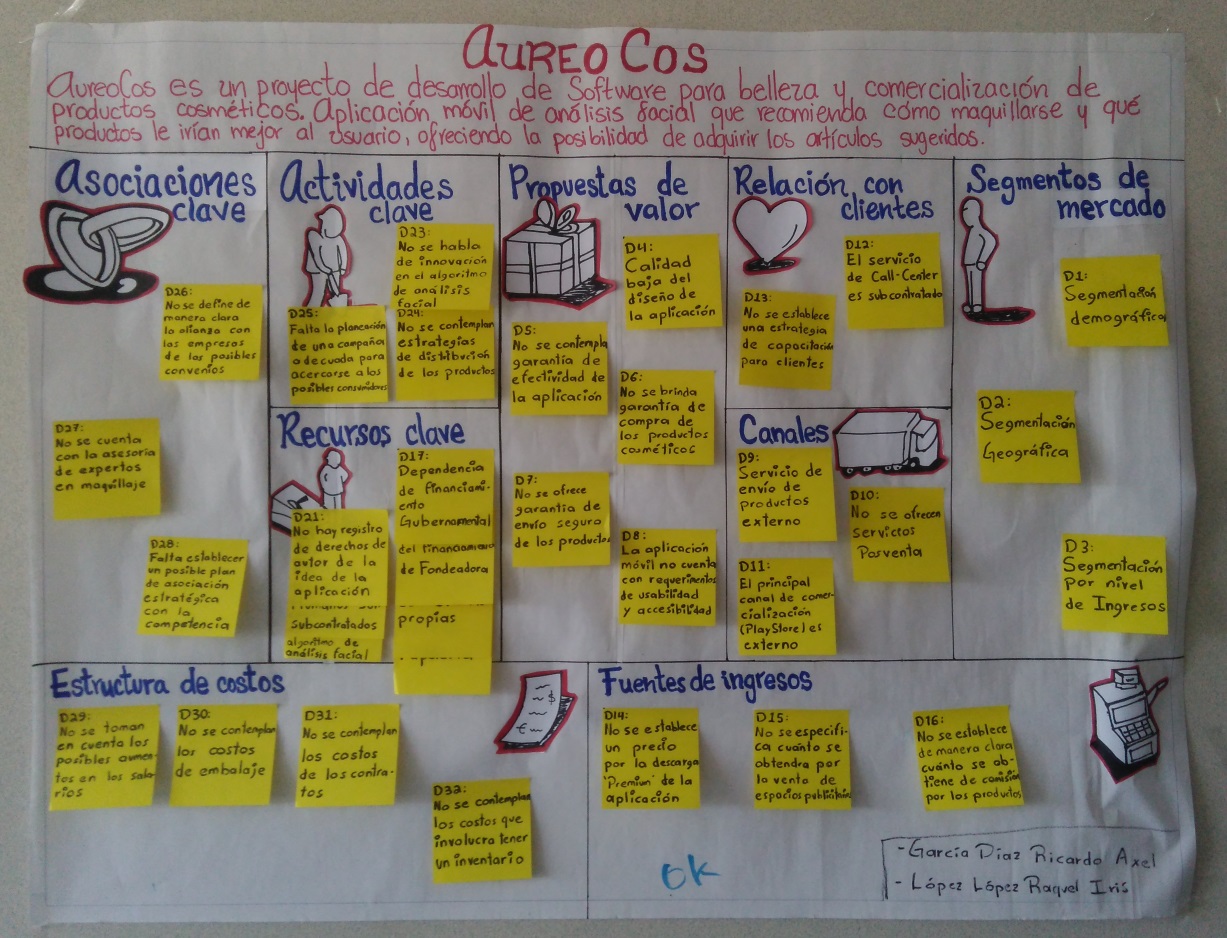 AUREO COS
AureoCos es un proyecto de desarrollo de Software para belleza y comercialización de
productos cosméticos. Aplicación móvil de análisis facial que recomienda cómo maquillarse y qué
productos le irían mejor al usuario, ofreciendo la posibilidad de adquirir los artículos sugeridos.
Asociaciones
clave
D26:
No se define de
manera clara
la alianza con
las empresas
de los posibles
convenios
D27:
No se cuenta
con la asesoría
de expertos
en maquillaje
D28:
Falta establecer
un posible plan
de asociación
estratégica
con la
competencia
Actividades
clave
D23:
No se habla
de innovación
en el algoritmo
de análisis
facial
D25:
Falta la planeación
de una campaña
adecuada para
acercarse a los
posibles consumidores
D24:
No se contemplan
estrategias
de distribución
de los productos
Recursos clave
D17:
Dependencia
de financiami-
ento
Gubernamental
del financiamiento
de Fondeadora
propias
D21:
No hay registro
de derechos de
autor de la
idea de la
aplicación
Subcontratados
algoritmo de
análisis facial
Propuestas de
valor
D4:
Calidad
baja del
diseño de
la aplicación
D5:
No se contempla
garantía de
efectividad de
la aplicación
D6:
No se brinda
garantía de
compra de
los productos
cosméticos
D7:
No se ofrece
garantía de
envío seguro
de los productos
D8:
La aplicación
móvil no cuenta
con requerimientos
de usabilidad
y accesibilidad
Relación con
clientes
D12:
El servicio
de Call-Center
es subcontratado
D13:
No se establece
una estrategia
de capacitación
para clientes
Canales
D9:
Servicio de
envío de
productos
externo
D10:
No se ofrecen
Servicios
Posventa
D11:
El principal
canal de comer-
cialización
(PlayStore) es
externo
Segmentos de
mercado
D1:
Segmentación
demográfica
D2:
Segmentación
Geográfica
D3:
Segmentación
por nivel
de Ingresos
Estructura de costos
D29:
No se toman
en cuenta los
posibles aumen-
tos en los sala-
rios
D30:
No se contemplan
los costos
de embalaje
D31:
No se contemplan
los costos
de los contra-
tos
D32:
No se contemplan
los costos que
involucra tener
un inventario
Fuentes de ingresos
D14:
No se establece
un precio
por la descarga
"Premium" de la
aplicación
D15:
No se especifi-
ca cuánto se
obtendra por
la venta de
espacios publicitarios
D16:
No se establece
de manera clara
cuánto se ob-
tiene de comisión
por los productos
OK
- García Díaz Ricardo Axel
- López López Raquel Iris